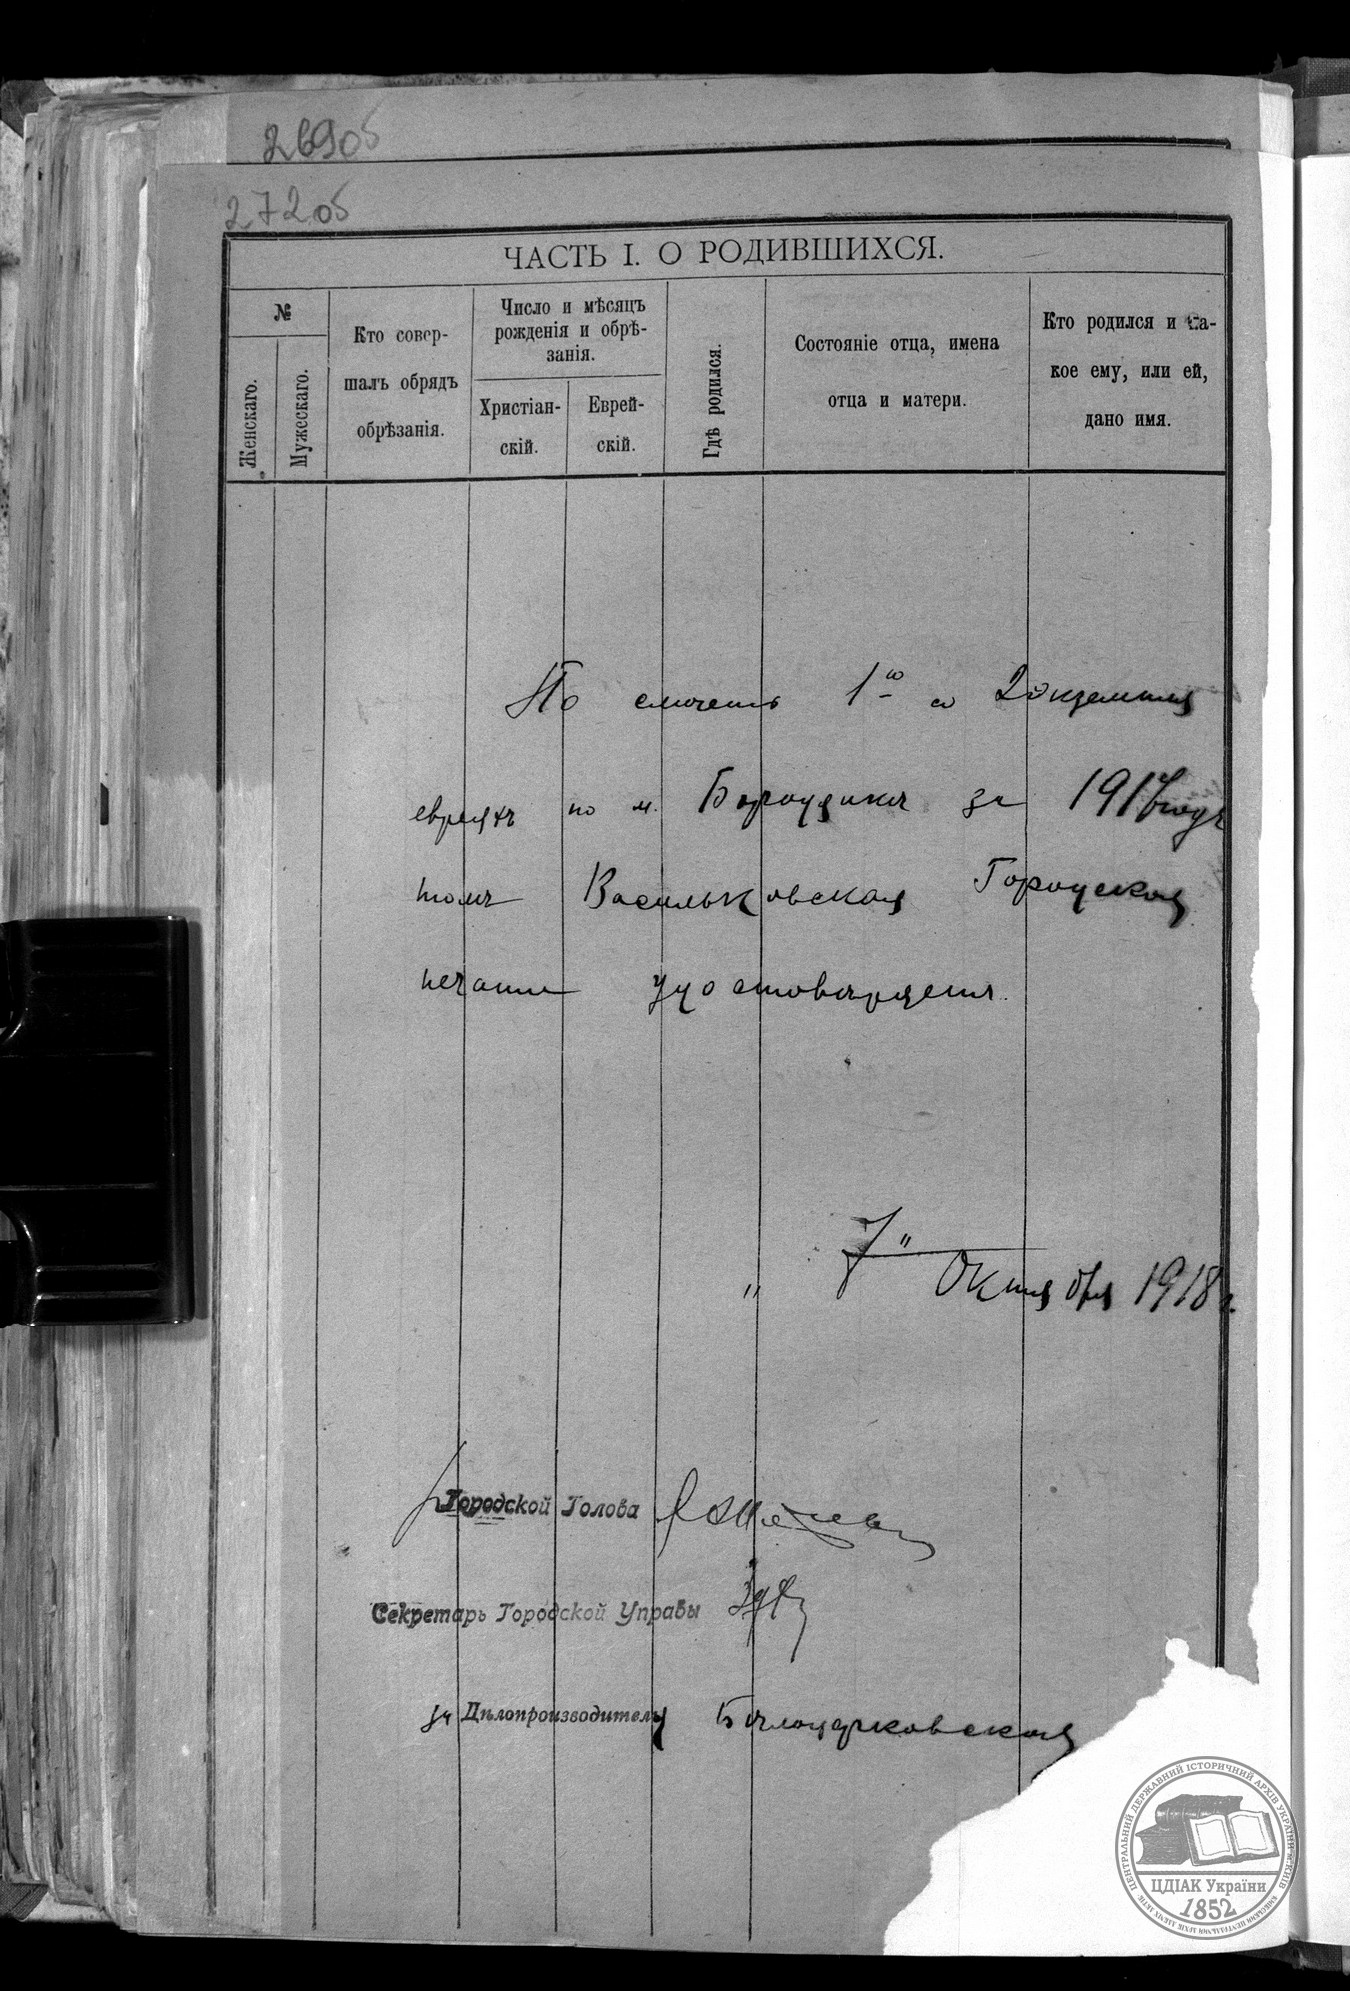 269об
272об
ЧАСТЬ I. О РОДИВШИХСЯ.
№
Женскаго.
Мужескаго.
Кто совер-
шалъ обрядъ
обрѣзанія.
Число и мѣсяцъ
рожденія и обрѣ-
занія.
Христіан-
скій.
Еврей-
скій.
Гдѣ родился.
Состояніе отца, имена
отца и матери.
Кто родился и ка-
кое ему, или ей,
дано имя.
По 1ю со
евреяхъ по м. за 1917 годъ
томъ Васильковская Городская
удостовѣряетъ.
" 7 " Октября 1918 г.
Городской Голова
Секретарь Городской Управы
За Дѣлопроизводителя
ЦЕНТРАЛЬНИЙ ДЕРЖАВНИЙ ІСТОРИЧНИЙ АРХІВ УКРАЇНИ, м. КИЇВ
ЦДІАК України
1852